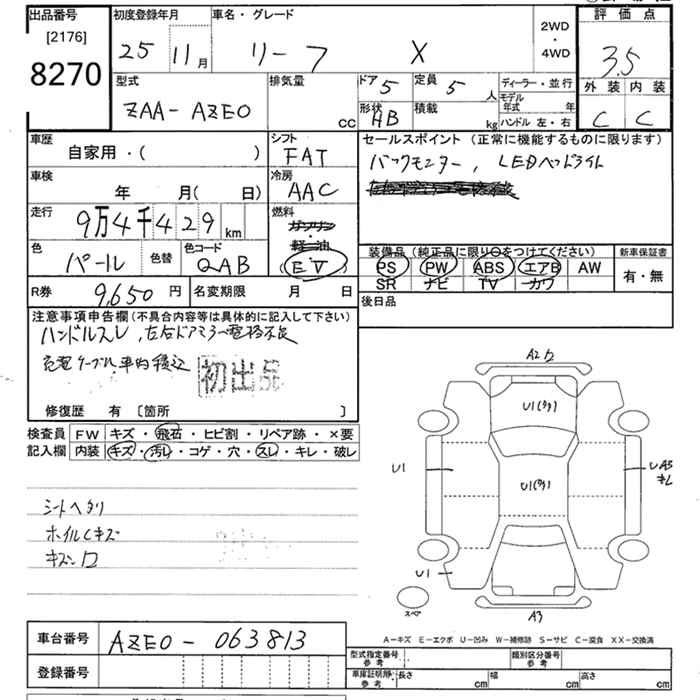 出品番号
[2176]
8270
初度登録年月
25 11月
車名・グレード
リーフ X
2WD
・
4WD
評価点
3.5
外装 内装
C C
型式
ZAA-AZE0
排気量
cc
ドア 5
定員 5 人
形状 HB
積載 kg
ディーラー・並行
モデル年式 年
ハンドル 左・右
車歴
自家用・( )
シフト
FAT
車検
年 月( 日)
冷房
AAC
走行
9万4千429km
燃料
ガソリン
軽油
(EV)
色
パール
色替
色コード
QAB
R券 9,650円
名変期限 月 日
セールスポイント(正常に機能するものに限ります)
バックモニター, LEDヘッドライト
装備品(純正品に限り○をつけてください)
PS PW ABS エアB AW
SR ナビ TV カワ
新車保証書
有・無
後日品
注意事項申告欄(不具合内容等は具体的に記入して下さい)
ハンドルスレ, 左右ドアミラー電格不良
充電ケーブル車内積込
初出品
修復歴 有 [箇所 ]
検査員記入欄
FW キズ・飛石・ヒビ割・リペア跡・×要
内装 キズ・汚レ・コゲ・穴・スレ・キレ・破レ
シートヘタリ
ホイルCキズ
A2
U1(タタ)
U1
U1(タタ)
UA3
U1
スペア
A3
A-キズ E-エクボ U-凹み W-補修跡 S-サビ C-腐食 XX-交換済
車台番号
AZE0-063813
登録番号
型式指定番号
参考
類別区分番号
参考
車庫証明用
参考
長さ cm
幅 cm
高さ cm